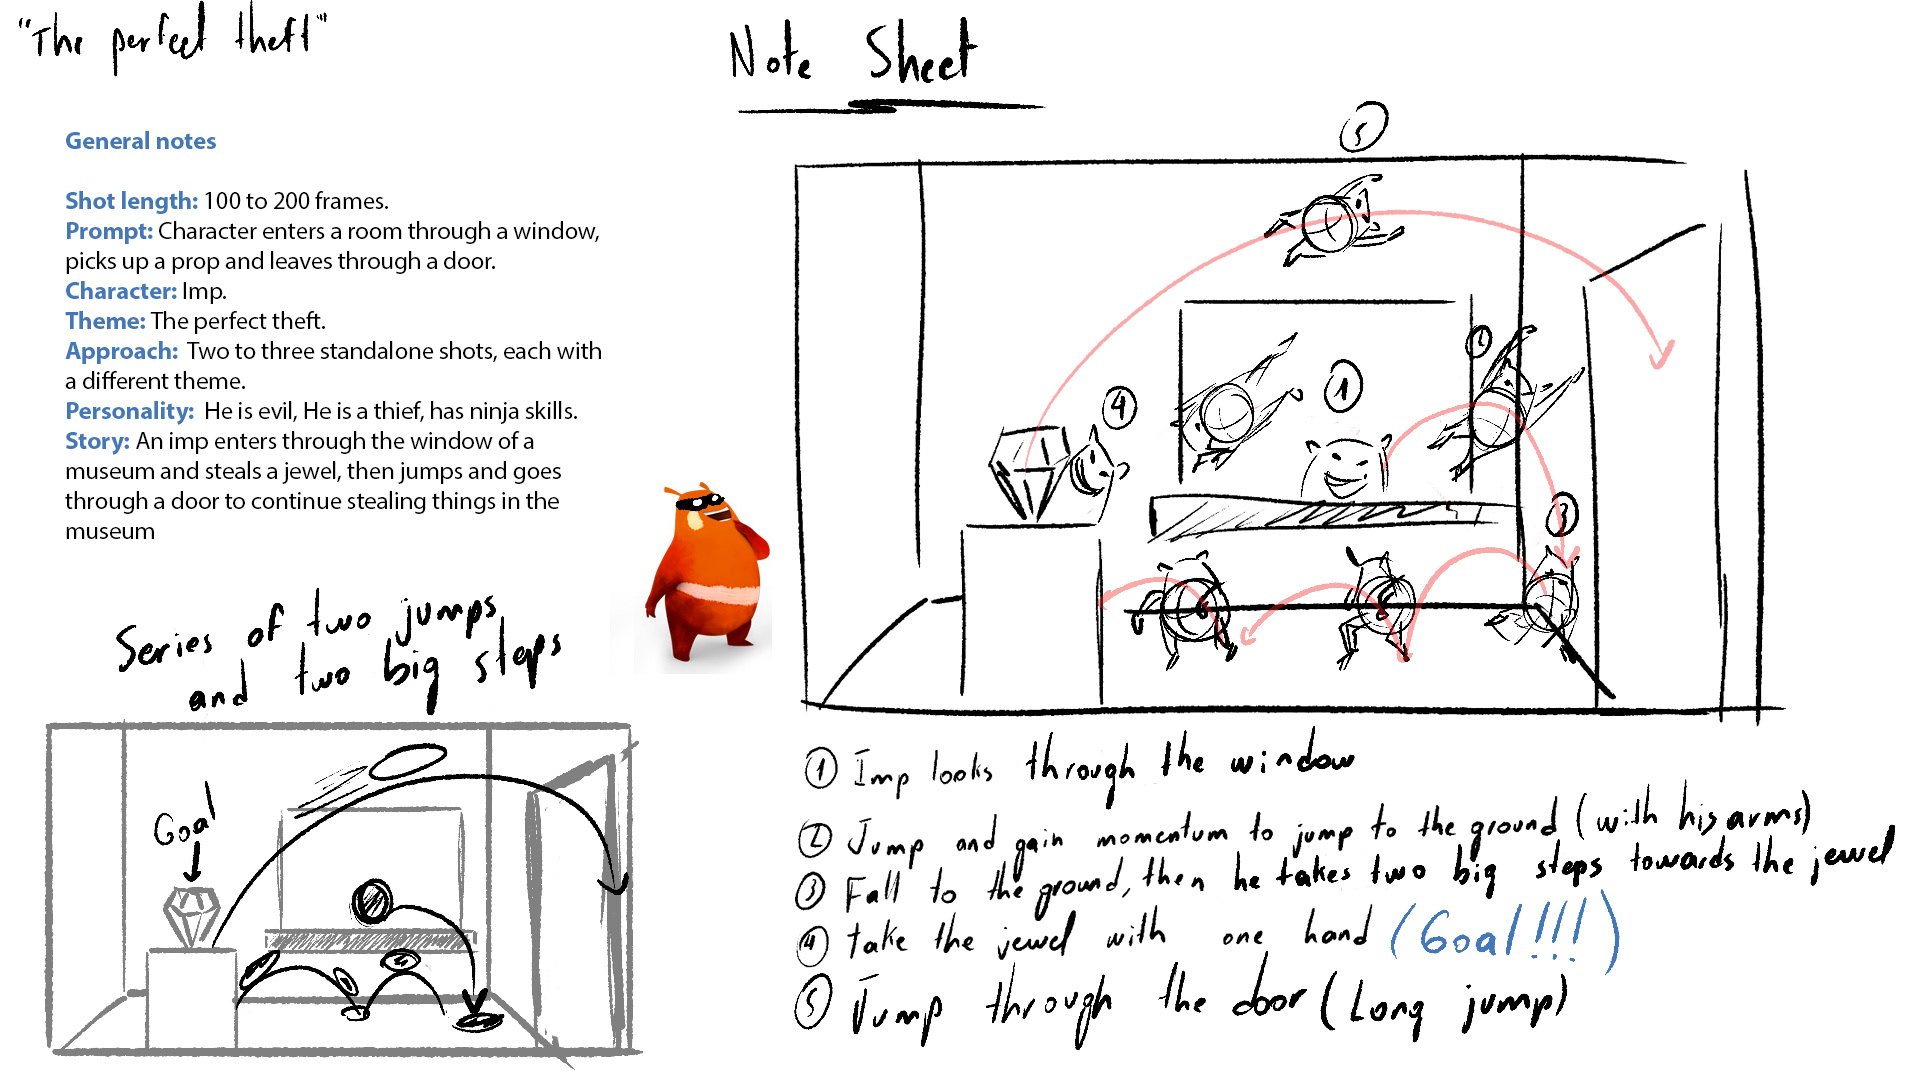 "The perfect theft"
Note Sheet
General notes
Shot length: 100 to 200 frames.
Prompt: Character enters a room through a window,
picks up a prop and leaves through a door.
Character: Imp.
Theme: The perfect theft.
Approach: Two to three standalone shots, each with
a different theme.
Personality: He is evil, He is a thief, has ninja skills.
Story: An imp enters through the window of a
museum and steals a jewel, then jumps and goes
through a door to continue stealing things in the
museum
Series of two jumps
and two big steps
Goal
5
4
1
2
3
1 Imp looks through the window
2 Jump and gain momentum to jump to the ground (with his arms)
3 Fall to the ground, then he takes two big steps towards the jewel
4 take the jewel with one hand (Goal!!!)
5 Jump through the door (Long jump)